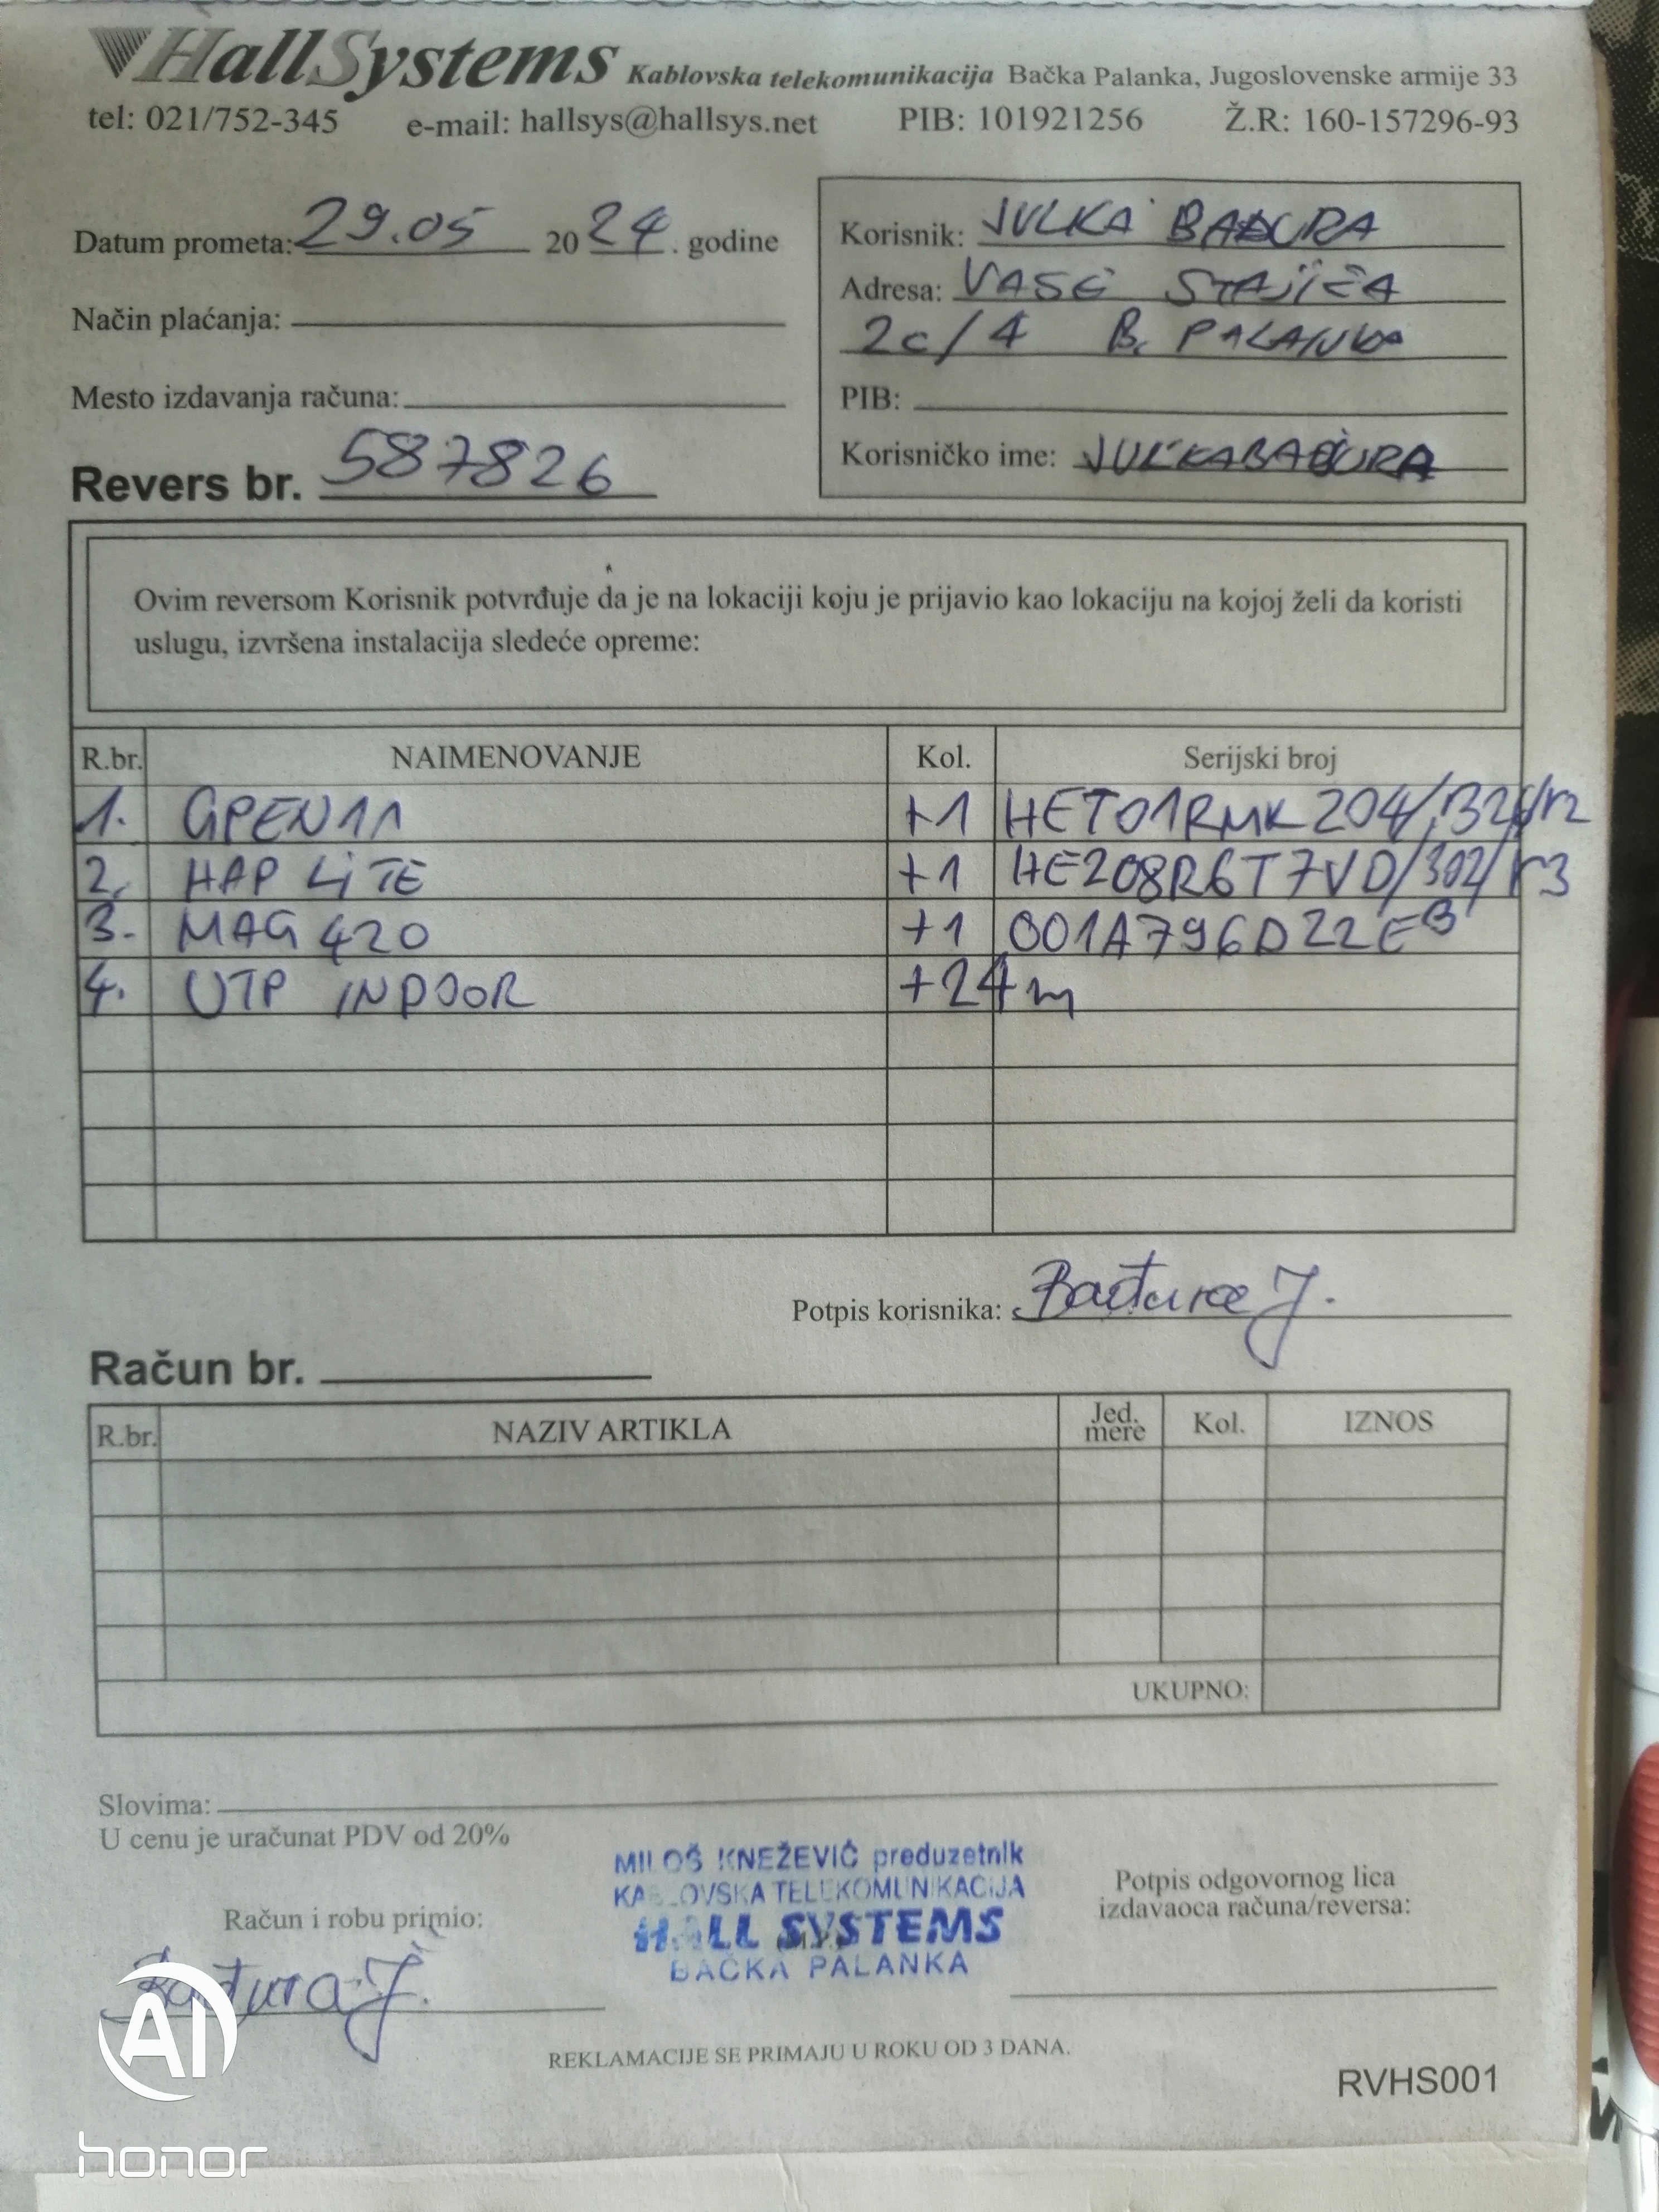 HallSystems Kablovska telekomunikacija Bačka Palanka, Jugoslovenske armije 33
tel: 021/752-345 e-mail: hallsys@hallsys.net PIB: 101921256 Ž.R: 160-157296-93
Datum prometa: 29.05 2024. godine
Način plaćanja:
Mesto izdavanja računa:
Revers br. 587826
Korisnik: JULKA BAĐURA
Adresa: VASE STAJIĆA
2c/4 B. PALANKA
PIB:
Korisničko ime: JULKABAĐURA
Ovim reversom Korisnik potvrđuje da je na lokaciji koju je prijavio kao lokaciju na kojoj želi da koristi
uslugu, izvršena instalacija sledeće opreme:
R.br. NAIMENOVANJE Kol. Serijski broj
1. GPEN11 +1 HET01RMK204/326/r2
2. HAP LiTE +1 HE208R6T7VD/302/r3
3. MAG 420 +1 001A796D22EB
4. UTP INDOOR +24m
Potpis korisnika: Bađura J.
Račun br.
R.br. NAZIV ARTIKLA Jed. mere Kol. IZNOS
UKUPNO:
Slovima:
U cenu je uračunat PDV od 20%
MILOŠ KNEŽEVIĆ preduzetnik
KABLOVSKA TELEKOMUNIKACIJA
HALL SYSTEMS
BAČKA PALANKA
Račun i robu primio:
Bađura J.
Potpis odgovornog lica
izdavaoca računa/reversa:
REKLAMACIJE SE PRIMAJU U ROKU OD 3 DANA.
RVHS001
AI
honor